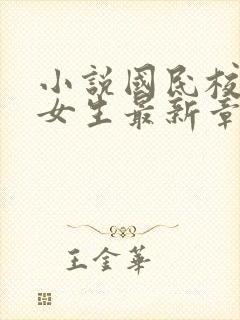 小說國民校
女生最新章
王金華